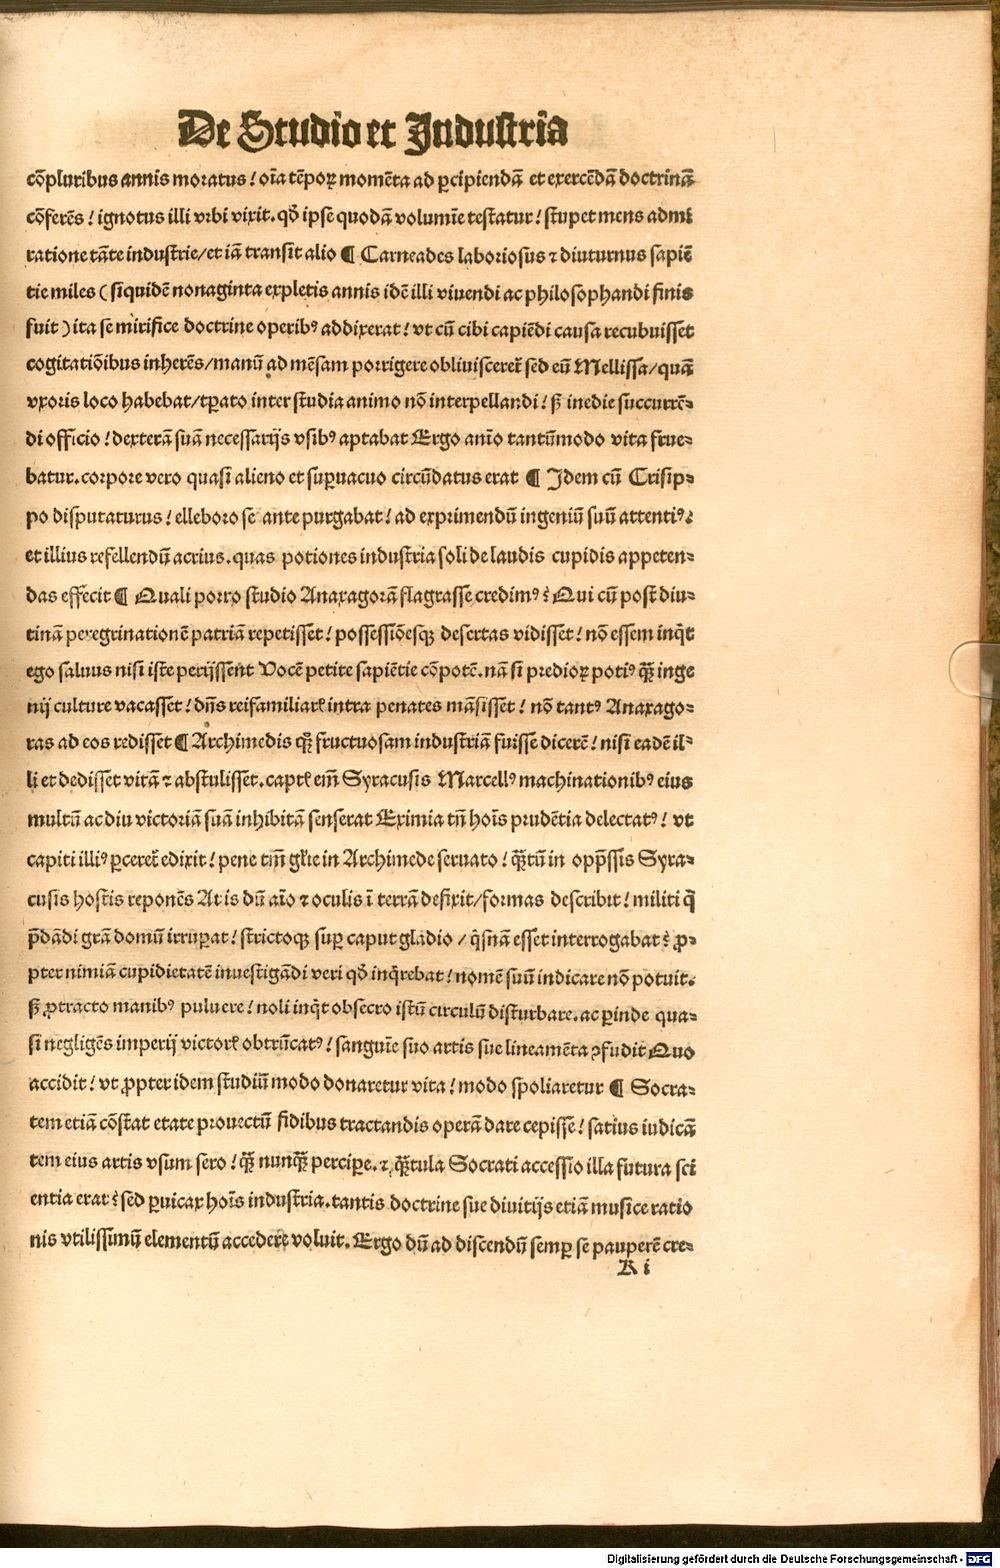 De Studio et Industria
cōpluribus annis moratus! oīa tēpoꝝ momēta ad ꝑcipiendā et exercēdā doctrinā
cōferēs! ignotus illi vrbi vixit. qđ ipse quodā volumīe testatur! stupet mens admi
ratione tāte industrie/et iā transit alio ¶ Carneades laboriosus ⁊ diuturnus sapiē
tie miles (siquidē nonaginta expletis annis idē illi viuendi ac philosophandi finis
fuit) ita se mirifice doctrine operibꝰ addixerat! vt cū cibi capiēdi causa recubuisset
cogitatiōibus inherēs/manū ad mēsam porrigere obliuiscereť sed eū Mellissa/quā
vxoris loco habebat/tꝑato inter studia animo nō interpellandi! sꝫ inedie succurrē⸗
di officio! dexterā suā necessarijs vsibꝰ aptabat Ergo anīo tantūmodo vita frue⸗
batur. corpore vero quasi alieno et suꝑuacuo circūdatus erat ¶ Idem cū Crisip⸗
po disputaturus! elleboro se ante purgabat! ad exprimendū ingeniū suū attentiꝰ⁊
et illius refellendū acrius. quas potiones industria soli de laudis cupidis appeten⸗
das effecit ¶ Quali porro studio Anaxagorā flagrasse credimꝰ⁊ Qui cū post diu⸗
tinā peregrinationē patriā repetisset! possessiōesqꝫ desertas vidisset! nō essem inqͥt
ego saluus nisi iste perijssent Vocē petite sapiētie cōpotē. nā si predioꝝ potiꝰ qꝫ̄ inge
nij culture vacasset! dn̄s reifamiliarꝭ intra penates māsisset! nō tantꝰ Anaxago⸗
ras ad eos redisset ¶ Archimedis qꝫ̄ fructuosam industriā fuisse dicerē! nisi eadē il⸗
li et dedisset vitā ⁊ abstulisset. captꝭ em̄ Syracusis Marcellꝰ machinationibꝰ eius
multū ac diu victoriā suā inhibitā senserat Eximia tn̄ hoīs prudētia delectatꝰ! vt
capiti illiꝰ ꝑcereť edixit! pene tm̄ gl̄ie in Archimede seruato! qꝫ̄tū in opp̄ssis Syra⸗
cusis hostis reponēs At is dū aīo ⁊ oculis ī terrā defixit/formas describit! militi qͥ
p̄dādi grā domū irruꝑat! strictoqꝫ suꝑ caput gladio / qͥsnā esset interrogabat⁊ ꝓ⸗
pter nimiā cupidietatē inuestigādi veri qđ inqͥrebat! nomē suū indicare nō potuit.
sꝫ ꝓtracto manibꝰ puluere! noli inqͥt obsecro istū circulū disturbare. ac ꝑinde qua⸗
si negligēs imperij victorꝭ obtrūcatꝰ! sanguīe suo artis sue lineamēta ꝯfudit Quo
accidit! vt ꝓpter idem studiū modo donaretur vita! modo spoliaretur ¶ Socra⸗
tem etiā cōstat etate prouectū fidibus tractandis operā dare cepisse! satius iudicā
tem eius artis vsum sero! qꝫ̄ nunqꝫ̄ perciꝑe. ⁊ qꝫ̄tula Socrati accessio illa futura sci
entia erat⁊ sed ꝑuicax hoīs industria. tantis doctrine sue diuitijs etiā musice ratio
nis vtilissimū elementū accedere voluit. Ergo dū ad discendū semꝑ se pauperē cre⸗
K i
Digitalisierung gefördert durch die Deutsche Forschungsgemeinschaft - DFG